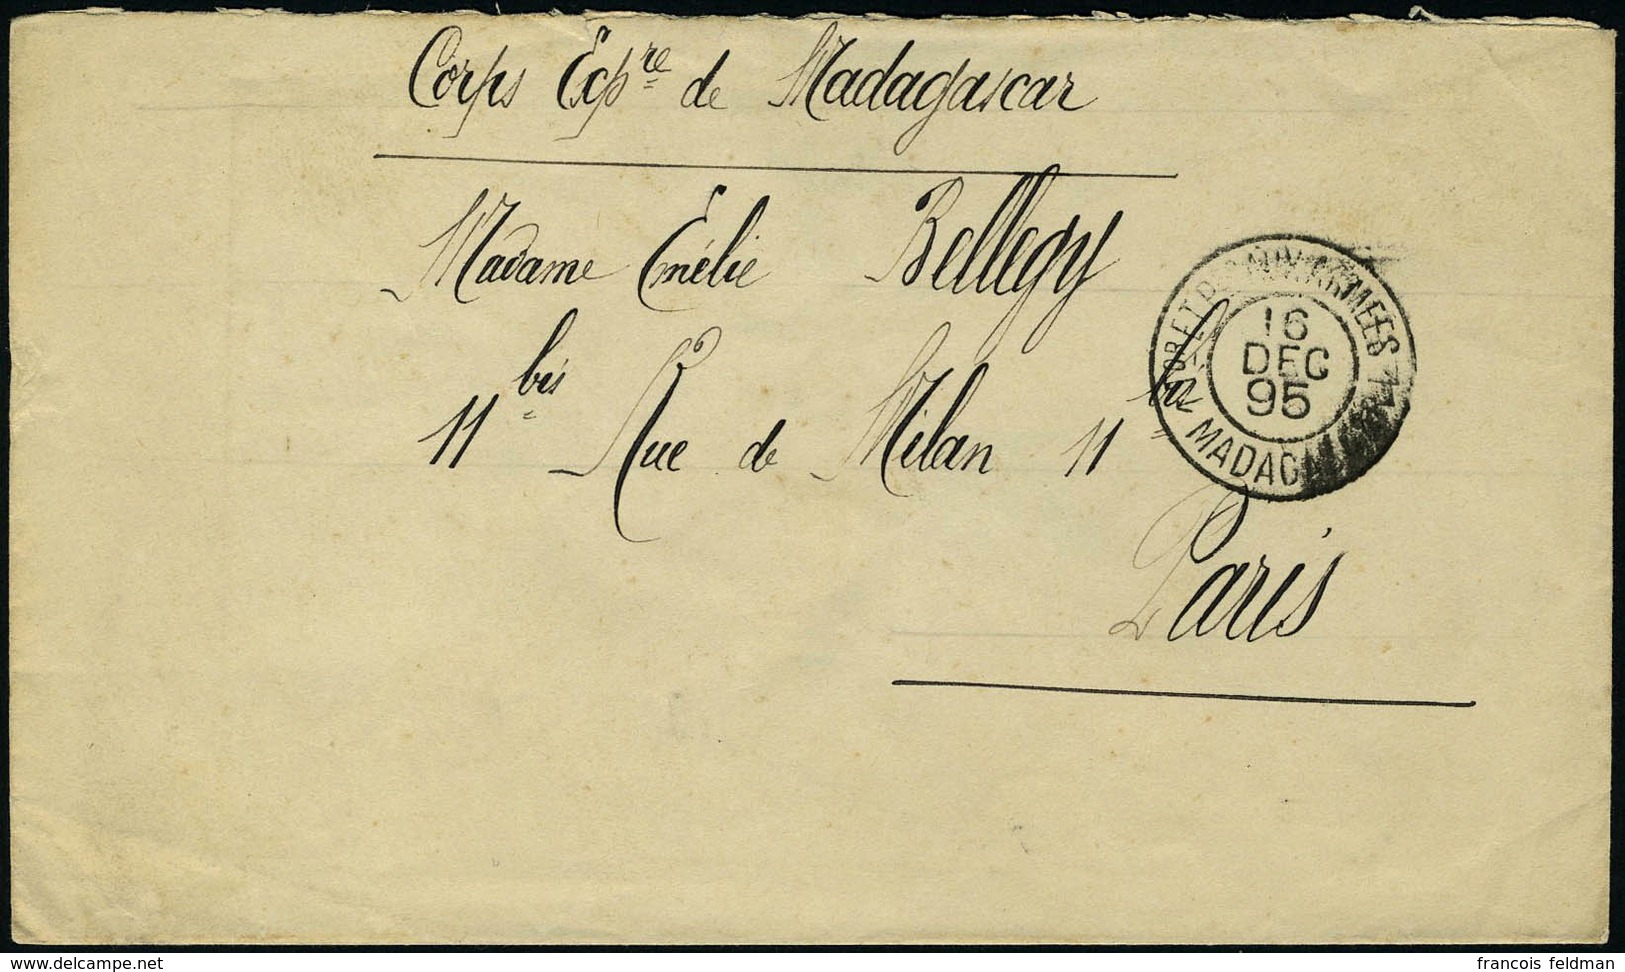 Corps Expre de Madagascar
Madame Emélie Bellegy
11 bis Rue de Milan 11 bis
Paris
16
DEC
95
ARMÉES
MADAGA
www.delcampe.net
francois feldman